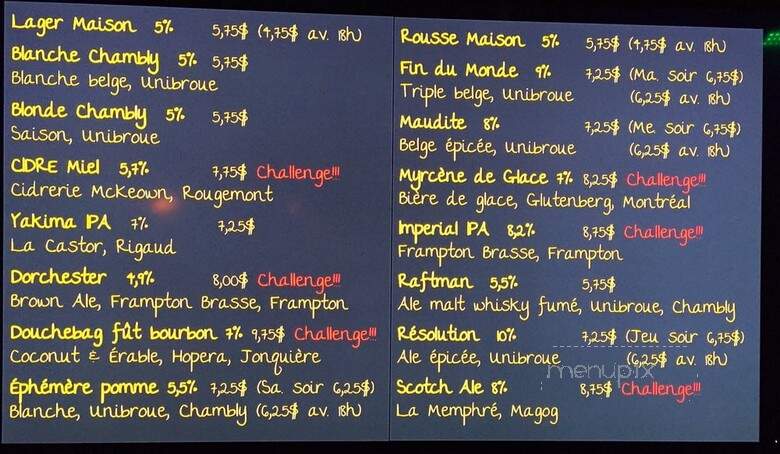 Lager Maison 5% 5,75$ (4,75$ av. 18h)
Blanche Chambly 5% 5,75$
Blanche belge, Unibroue
Blonde Chambly 5% 5,75$
Saison, Unibroue
CIDRE Miel 5,7% 7,75$ Challenge!!!
Cidrerie McKeown, Rougemont
Yakima IPA 7% 7,25$
La Castor, Rigaud
Dorchester 4,9% 8,00$ Challenge!!!
Brown Ale, Frampton Brasse, Frampton
Douchebag fût bourbon 7% 9,75$ Challenge!!!
Coconut & Érable, Hopera, Jonquière
Éphémère pomme 5,5% 7,25$ (Sa. soir 6,25$)
Blanche, Unibroue, Chambly (6,25$ av. 18h)
Rousse Maison 5% 5,75$ (4,75$ av. 18h)
Fin du Monde 9% 7,25$ (Ma. soir 6,75$)
Triple belge, Unibroue (6,25$ av. 18h)
Maudite 8% 7,25$ (Me. soir 6,75$)
Belge épicée, Unibroue (6,25$ av. 18h)
Myrcène de Glace 7% 8,25$ Challenge!!!
Bière de glace, Glutenberg, Montréal
Imperial IPA 8,2% 8,75$ Challenge!!!
Frampton Brasse, Frampton
Raftman 5,5% 5,75$
Ale malt whisky fumé, Unibroue, Chambly
Résolution 10% 7,25$ (Jeu soir 6,75$)
Ale épicée, Unibroue (6,25$ av. 18h)
menupix
Scotch Ale 8% 8,75$ Challenge!!!
La Memphré, Magog